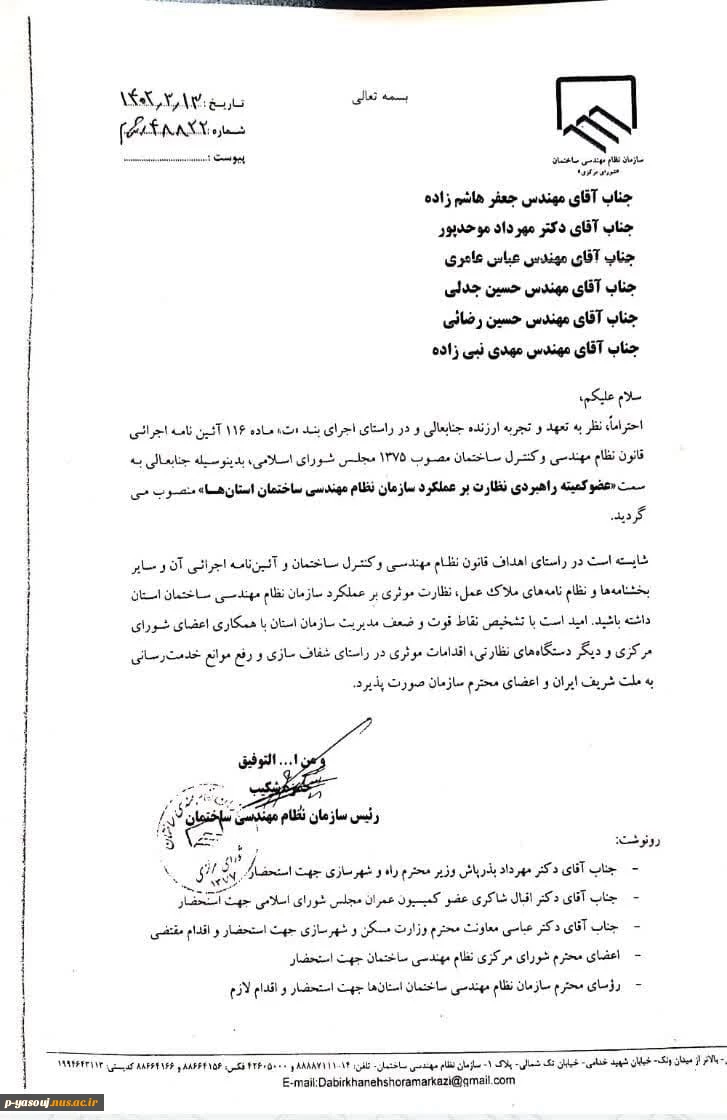 بسمه تعالی
تاریخ: ۱۴۰۲،۳،۱۳
شماره: ۴۸۸۲۲
پیوست :
سازمان نظام مهندسی ساختمان
«شورای مرکزی»
جناب آقای مهندس جعفر هاشم زاده
جناب آقای دکتر مهرداد موحدپور
جناب آقای مهندس عباس عامری
جناب آقای مهندس حسین جدلی
جناب آقای مهندس حسین رضائی
جناب آقای مهندس مهدی نبی زاده
سلام علیکم،
احتراماً، نظر به تعهد و تجربه ارزنده جنابعالی و در راستای اجرای بند «ت» ماده ۱۱۶ آئین نامه اجرائی
قانون نظام مهندسی و کنترل ساختمان مصوب ۱۳۷۵ مجلس شورای اسلامی، بدینوسیله جنابعالی به
سمت «عضو کمیته راهبردی نظارت بر عملکرد سازمان نظام مهندسی ساختمان استان‌ها» منصوب می
گردید.
شایسته است در راستای اهداف قانون نظام مهندسی و کنترل ساختمان و آئین‌نامه اجرائی آن و سایر
بخشنامه‌ها و نظام نامه‌های ملاک عمل، نظارت موثری بر عملکرد سازمان نظام مهندسی ساختمان استان
داشته باشید. امید است با تشخیص نقاط قوت و ضعف مدیریت سازمان استان با همکاری اعضای شورای
مرکزی و دیگر دستگاه‌های نظارتی، اقدامات موثری در راستای شفاف سازی و رفع موانع خدمت‌رسانی
به ملت شریف ایران و اعضای محترم سازمان صورت پذیرد.
و من ا... التوفیق
شکیب
رئیس سازمان نظام مهندسی ساختمان
شورای مرکزی
۱۳۷۷
رونوشت:
- جناب آقای دکتر مهرداد بذرپاش وزیر محترم راه و شهرسازی جهت استحضار
- جناب آقای دکتر اقبال شاکری عضو کمیسیون عمران مجلس شورای اسلامی جهت استحضار
- جناب آقای دکتر عباسی معاونت محترم وزارت مسکن و شهرسازی جهت استحضار و اقدام مقتضی
- اعضای محترم شورای مرکزی نظام مهندسی ساختمان جهت استحضار
- رؤسای محترم سازمان نظام مهندسی ساختمان استان‌ها جهت استحضار و اقدام لازم
- بالاتر از میدان ونک- خیابان شهید خدامی- خیابان تک شمالی- پلاک ۱- سازمان نظام مهندسی ساختمان- تلفن: ۱۴-۸۸۸۷۷۱۱۱۰ و ۴۲۶۰۵۰۰۰ فکس: ۸۸۶۶۴۱۵۶ و ۸۸۶۶۴۱۶۶ کدپستی: ۱۹۹۴۶۴۳۱۱۳
E-mail:Dabirkhanehshoramarkazi@gmail.com
p-yasouj.nus.ac.ir